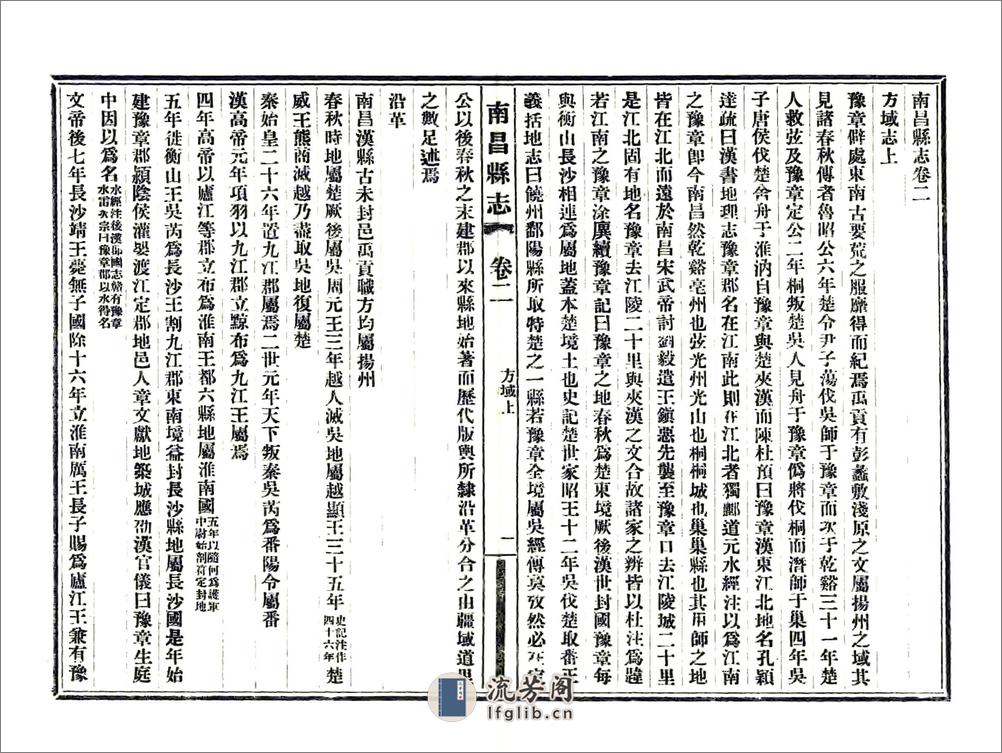 南昌縣志卷二
方域志上
豫章僻處東南古要荒之服靡得而紀焉禹貢有彭蠡敷淺原之文屬揚州之域其
見諸春秋傳者魯昭公六年楚令尹子蕩伐吳師于豫章而次于乾谿三十一年楚
人救弦及豫章定公二年桐叛楚吳人見舟于豫章僞將伐桐而潛師于巢四年吳
子唐侯伐楚舍舟于淮汭自豫章與楚夾漢而陳杜預曰豫章漢東江北地名孔穎
達疏曰漢書地理志豫章郡名在江南此則在江北者獨酈道元水經注以爲江南
之豫章卽今南昌然乾谿亳州也弦光州光山也桐桐城也巢巢縣也其用師之地
皆在江北而遠於南昌宋武帝討劉毅遣王鎮惡先襲至豫章口去江陵城二十里
是江北固有地名豫章去江陵二十里與夾漢之文合故諸家之辨皆以杜注爲韙
若江南之豫章涂廙續豫章記曰豫章之地春秋爲楚東境厥後漢世封國豫章每
與衡山長沙相連爲屬地蓋本楚境土也史記楚世家昭王十二年吳伐楚取番正
義括地志曰饒州鄱陽縣所取特楚之一縣若豫章全境屬吳經傳莫攷然必在定
南昌縣志 卷二 方域上 一
公以後春秋之末建郡以來縣地始著而歷代版輿所隸沿革分合之由疆域道里
之數足述焉
沿革
南昌漢縣古未封邑禹貢職方均屬揚州
春秋時地屬楚厥後屬吳周元王三年越人滅吳地屬越顯王三十五年史記注作四十六年楚
威王熊商滅越乃盡取吳地復屬楚
秦始皇二十六年置九江郡屬焉二世元年天下叛秦吳芮爲番陽令屬番
漢高帝元年項羽以九江郡立黥布爲九江王屬焉
四年高帝以廬江等郡立布爲淮南王都六縣地屬淮南國五年以隨何爲護軍中尉始剖符定封地
五年徙衡山王吳芮爲長沙王割九江郡東南境益封長沙縣地屬長沙國是年始
建豫章郡潁陰侯灌嬰渡江定郡地邑人章文獻地築城應劭漢官儀曰豫章生庭
中因以爲名水經注後漢郡國志贛有豫章水雷次宗曰豫章郡以水得名
文帝後七年長沙靖王薨無子國除十六年立淮南厲王長子賜爲廬江王兼有豫
流芳閣
lfglib.cn